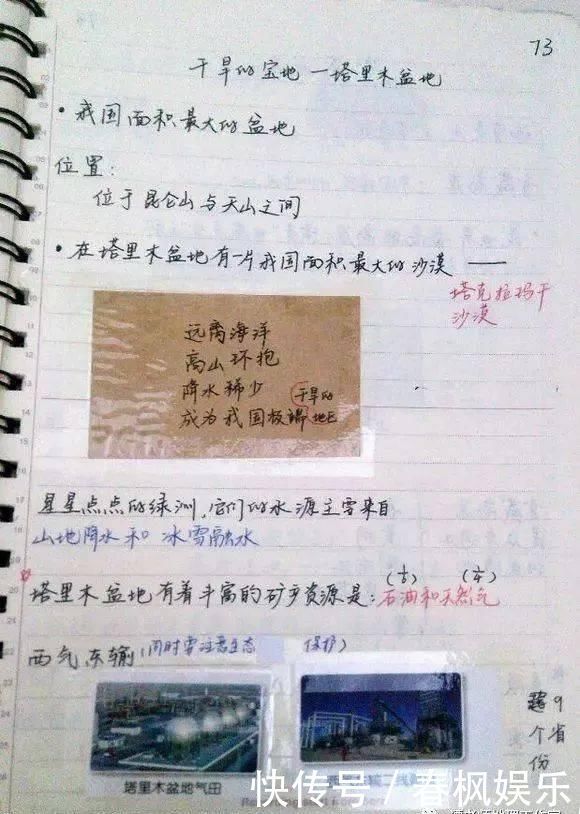 73
干旱的宝地 — 塔里木盆地
• 我国面积最大的盆地
位置:
位于昆仑山与天山之间
• 在塔里木盆地有一片我国面积最大的沙漠 ——
塔克拉玛干
沙漠
远离海洋
高山环抱
降水稀少
成为我国极端干旱的地区
星星点点的绿洲,它们的水源主要来自
山地降水和 冰雪融水
(1/7) (1/4)
塔里木盆地有着丰富的矿产资源是:石油和天然气
西气东输(同时要注意生态 保护)
跨9
个省
份
塔里木盆地气田
快传号 / 春枫娱乐